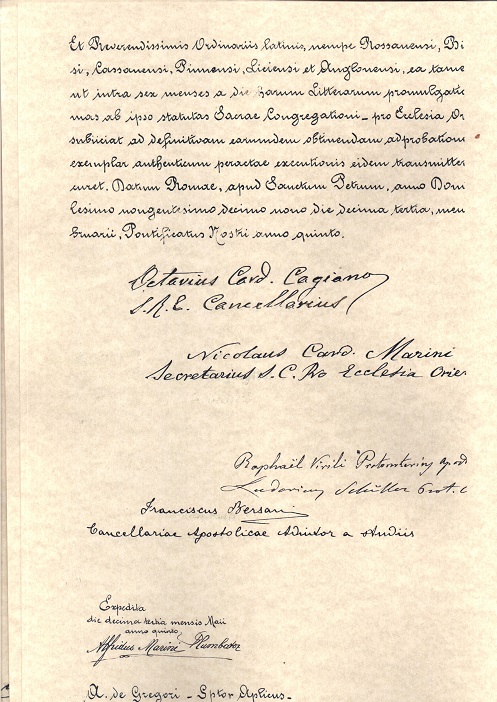 Et Reverendissimis Ordinariis latinis, nempe Rossanensi, Bi
si, Cassanensi, Pimensi, Liciensi et Anglonensi, ea tame
ut intra sex menses a die harum Litterarum promulgatio
mas ab ipso statutas Sacrae Congregationi pro Ecclesia Or
subiiciat ad definitivam earumdem obtinendam adprobation
exemplar authenticum peractae executionis eidem transmitter
curet. Datum Romae, apud Sanctum Petrum, anno Dom
lesimo nongentesimo decimo nono die decima tertia, men
bruarii, Pontificatus Nostri anno quinto.
Octavius Card. Cagiano
S.R.E. Cancellarius
Nicolaus Card. Marini
Secretarius S.C. Pro Ecclesia Orien
Raphaël Virili Protonotarius Apost
Ludovicus Schüller Prot.
Franciscus Bersani
Cancellariae Apostolicae Adiutor a Studiis
Expedita
die decima tertia mensis Maii
anno quinto,
Alfridus Marini Plumbator
A. de Gregori - Sptor Aplicus -